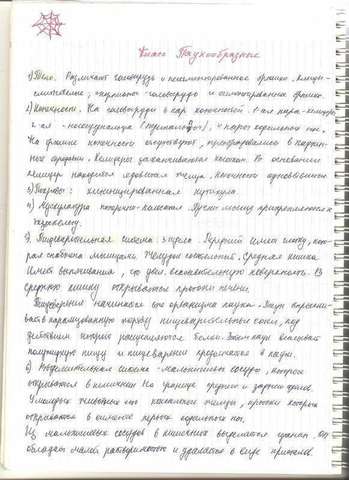 Класс Паукообразные
1) Тело. Различают головогрудь и несегментированное брюшко. Клеще-
головогрудь и сегментированное брюшко.
2) Конечности. На головогруди 6 пар конечностей. 1-ая пара - хелицеры
2-ая - ногощупальца (педипальпы), 4 пары ходильных ног.
На брюшке конечности отсутствуют, преобразовались в паутин-
ные бородавки. Хелицеры заканчиваются коготком. В основании
хелицер находится ядовитая железа. Конечности
3) Покровы: хитинизированная кутикула.
4) Мускулатура поперечно-полосатая. Пучки мышц прикрепляются к
экзоскелету.
5) Пищеварительная система: Передний имеет глотку, кото-
рая снабжена мышцами. Желудок сосательный. Средняя кишка
имеет выпячивания, что увел. всасывательную поверхность. В
среднюю кишку открываются протоки печени.
Пищеварение начинается вне организма паука. Пауки
в парализованную жертву пищеварительные соки, под
действием которых расщепляются белки. Затем пауки всасывают
полужидкую пищу и пищеварение продолжается в пауке.
6) Выделительная система - мальпигиевы сосуды, которые
открываются в кишечник на границе средней и задней кишок.
У молодых животных есть коксальные железы, протоки которых
открываются в основание первых ходильных ног.
Из мальпигиевых сосудов в кишечник выделяется гуанин, он
обладает малой растворимостью и удаляется в виде кристаллов.